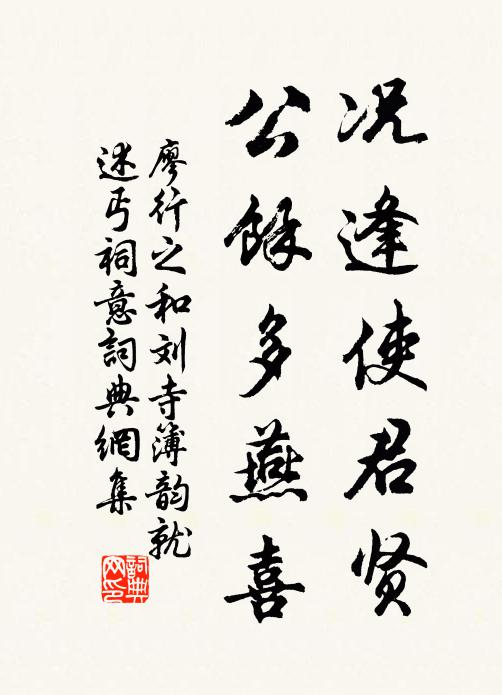 况逢使君贤
公馀多燕喜
廖行之和刘寺簿韵就
述丐祠意詞典網集
詞典
网印